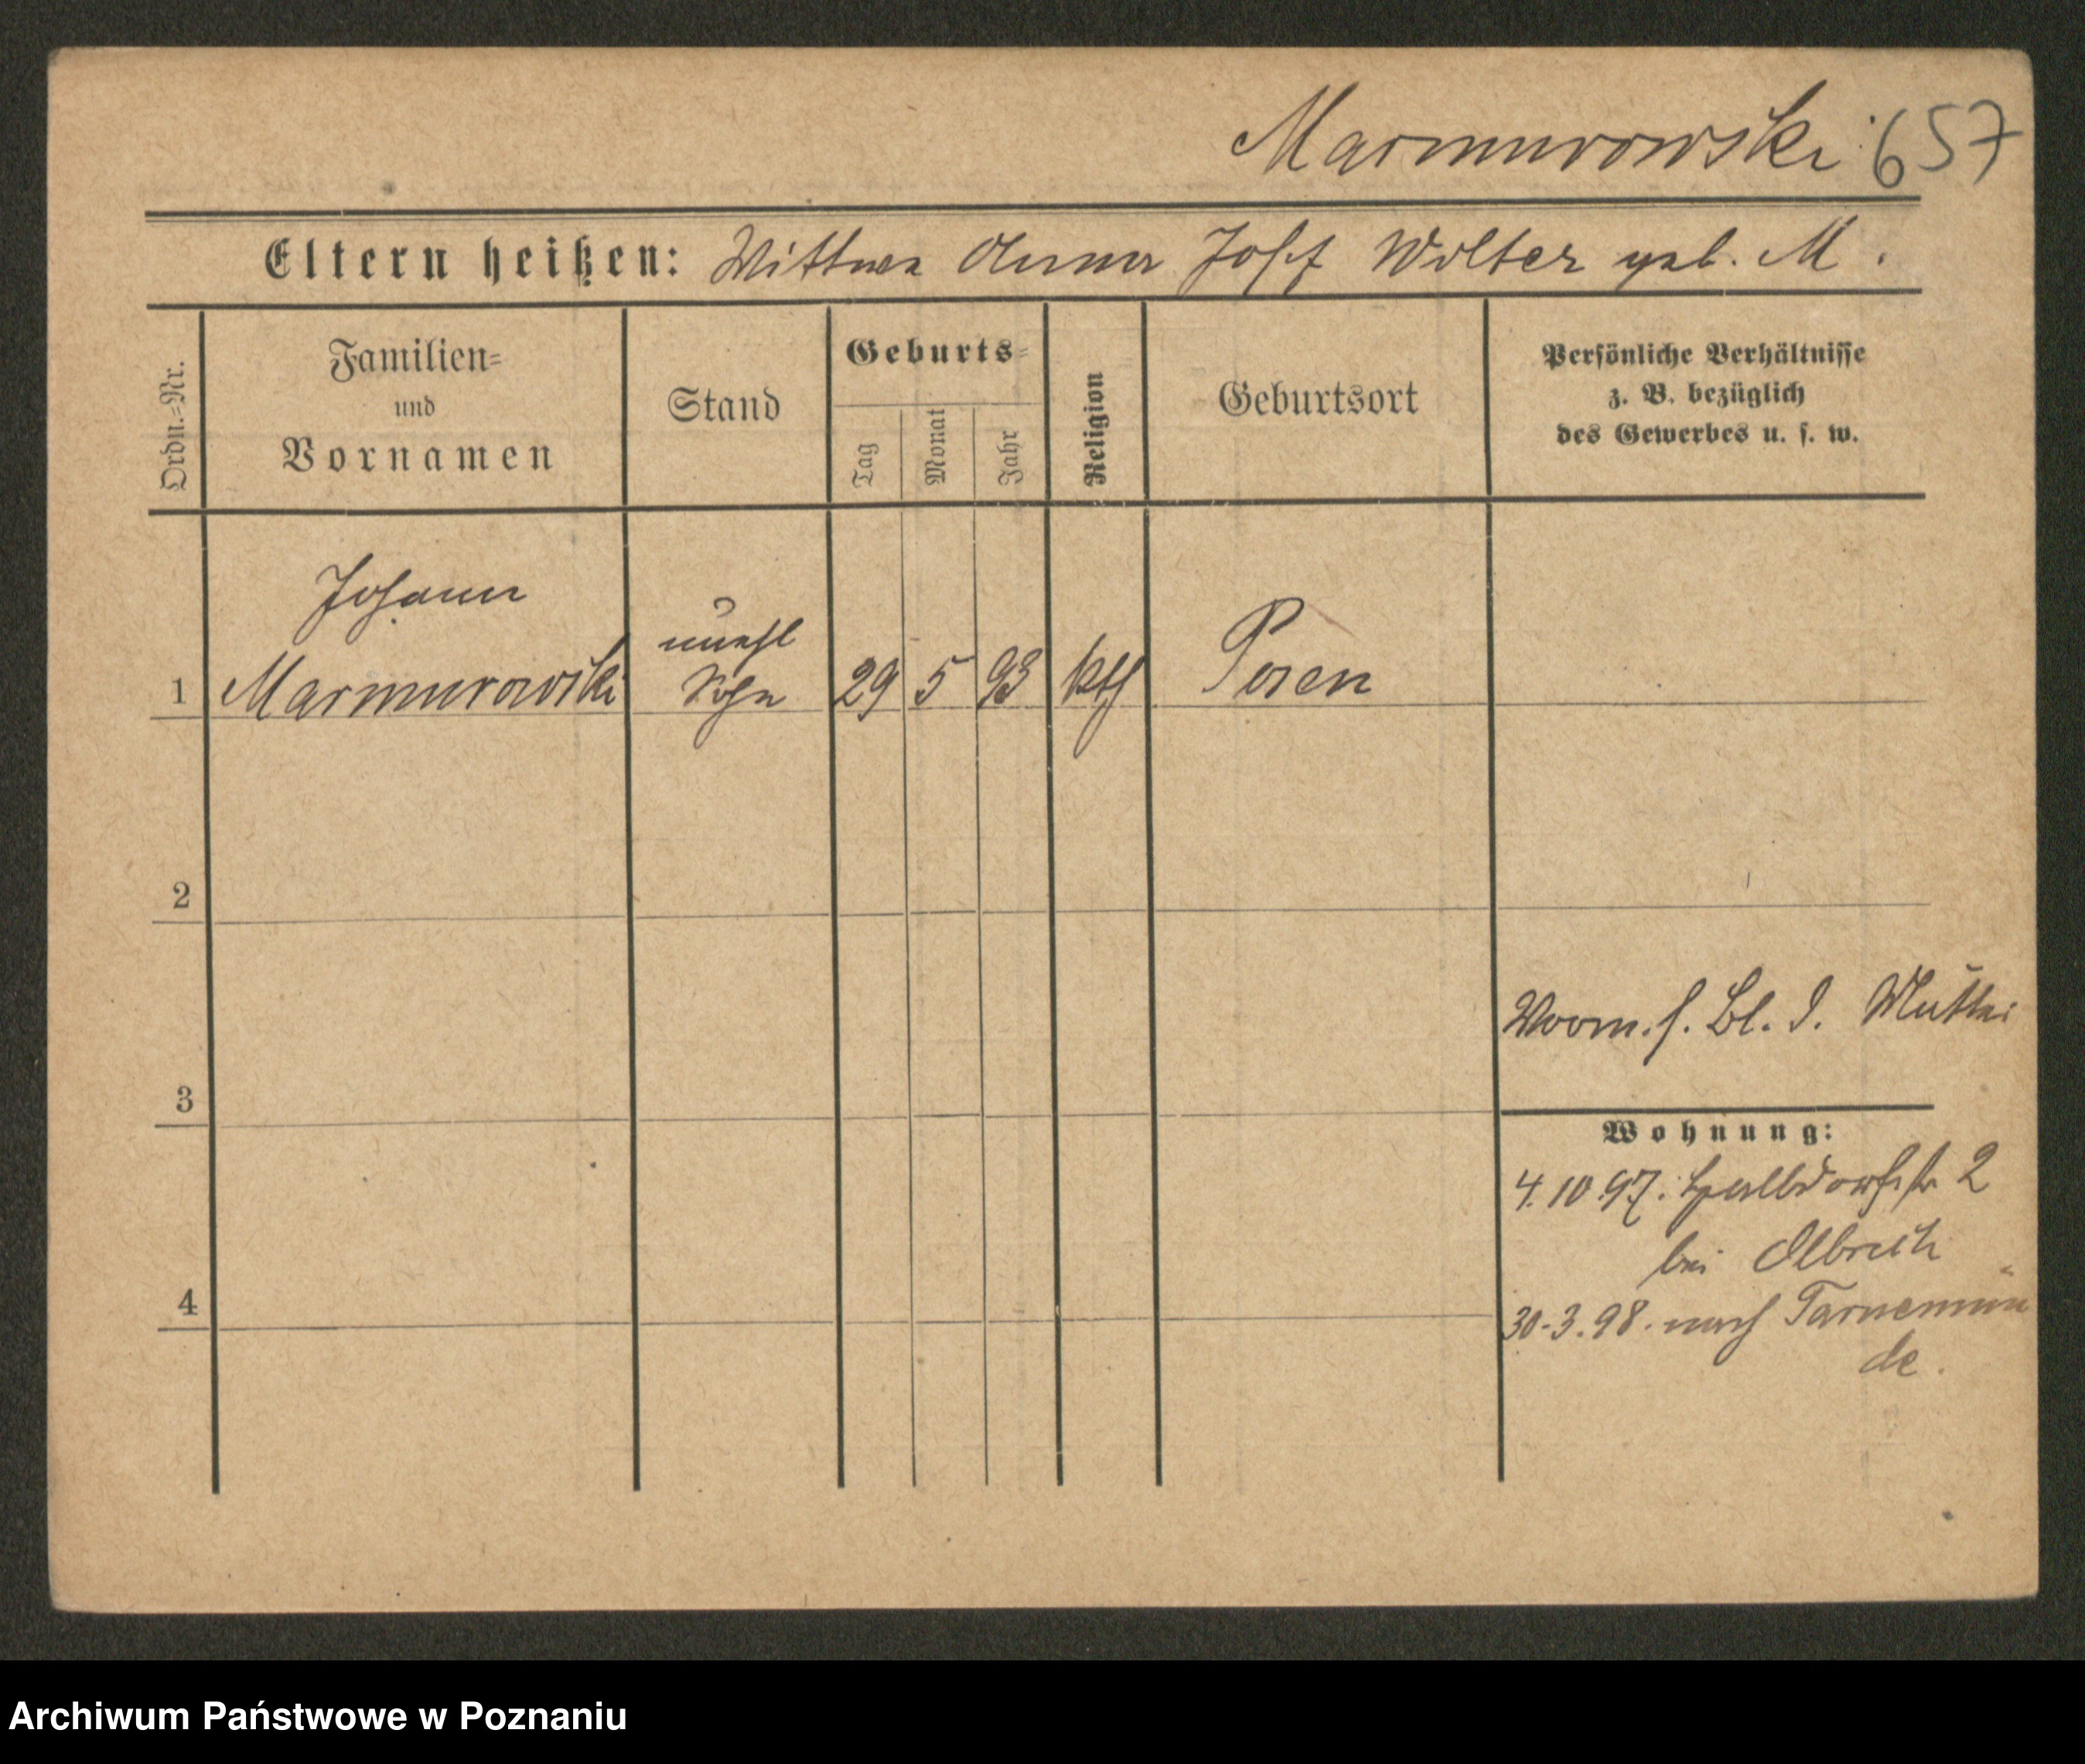 Marmurowski 657
Eltern heißen: Wittwe Anna Josef Wolter geb. M.
Ordn.-Nr.
Familien-
und
Vornamen
Stand
Geburts-
Tag
Monat
Jahr
Religion
Geburtsort
Persönliche Verhältnisse
z. B. bezüglich
des Gewerbes u. s. w.
Johann
unehl
1 Marmurowski Sohn 29 5 93 kth Posen
2
s. Bl. d. Mutter
3
Wohnung:
4.10.97. Halbdorfstr 2
bei Olbrich
4
30.3.98. nach Tarnemün
de.
Archiwum Państwowe w Poznaniu